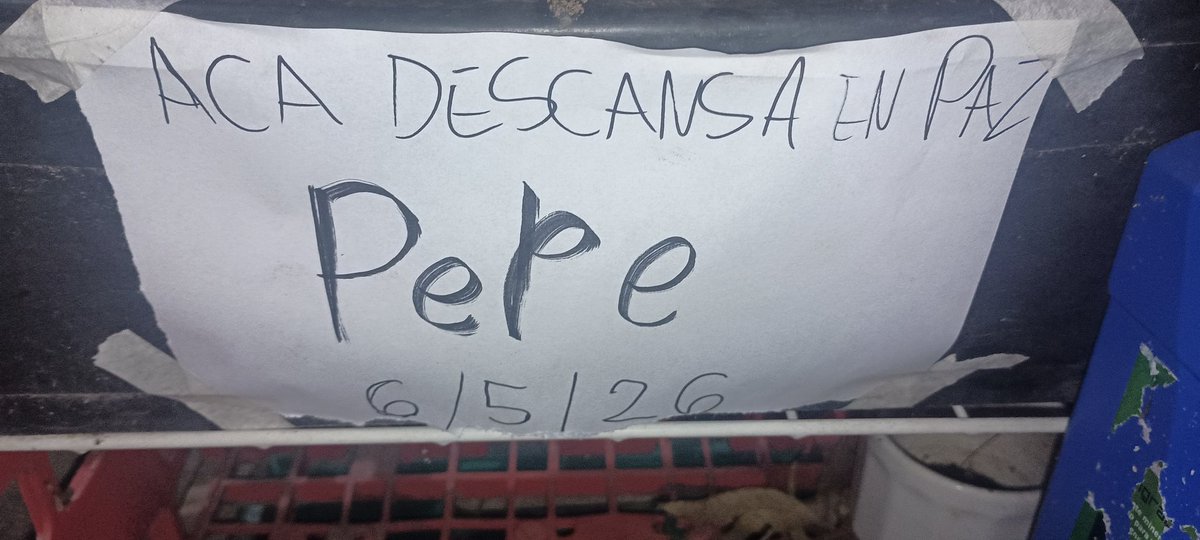 ACA DESCANSA EN PAZ
PePe
6/5/26